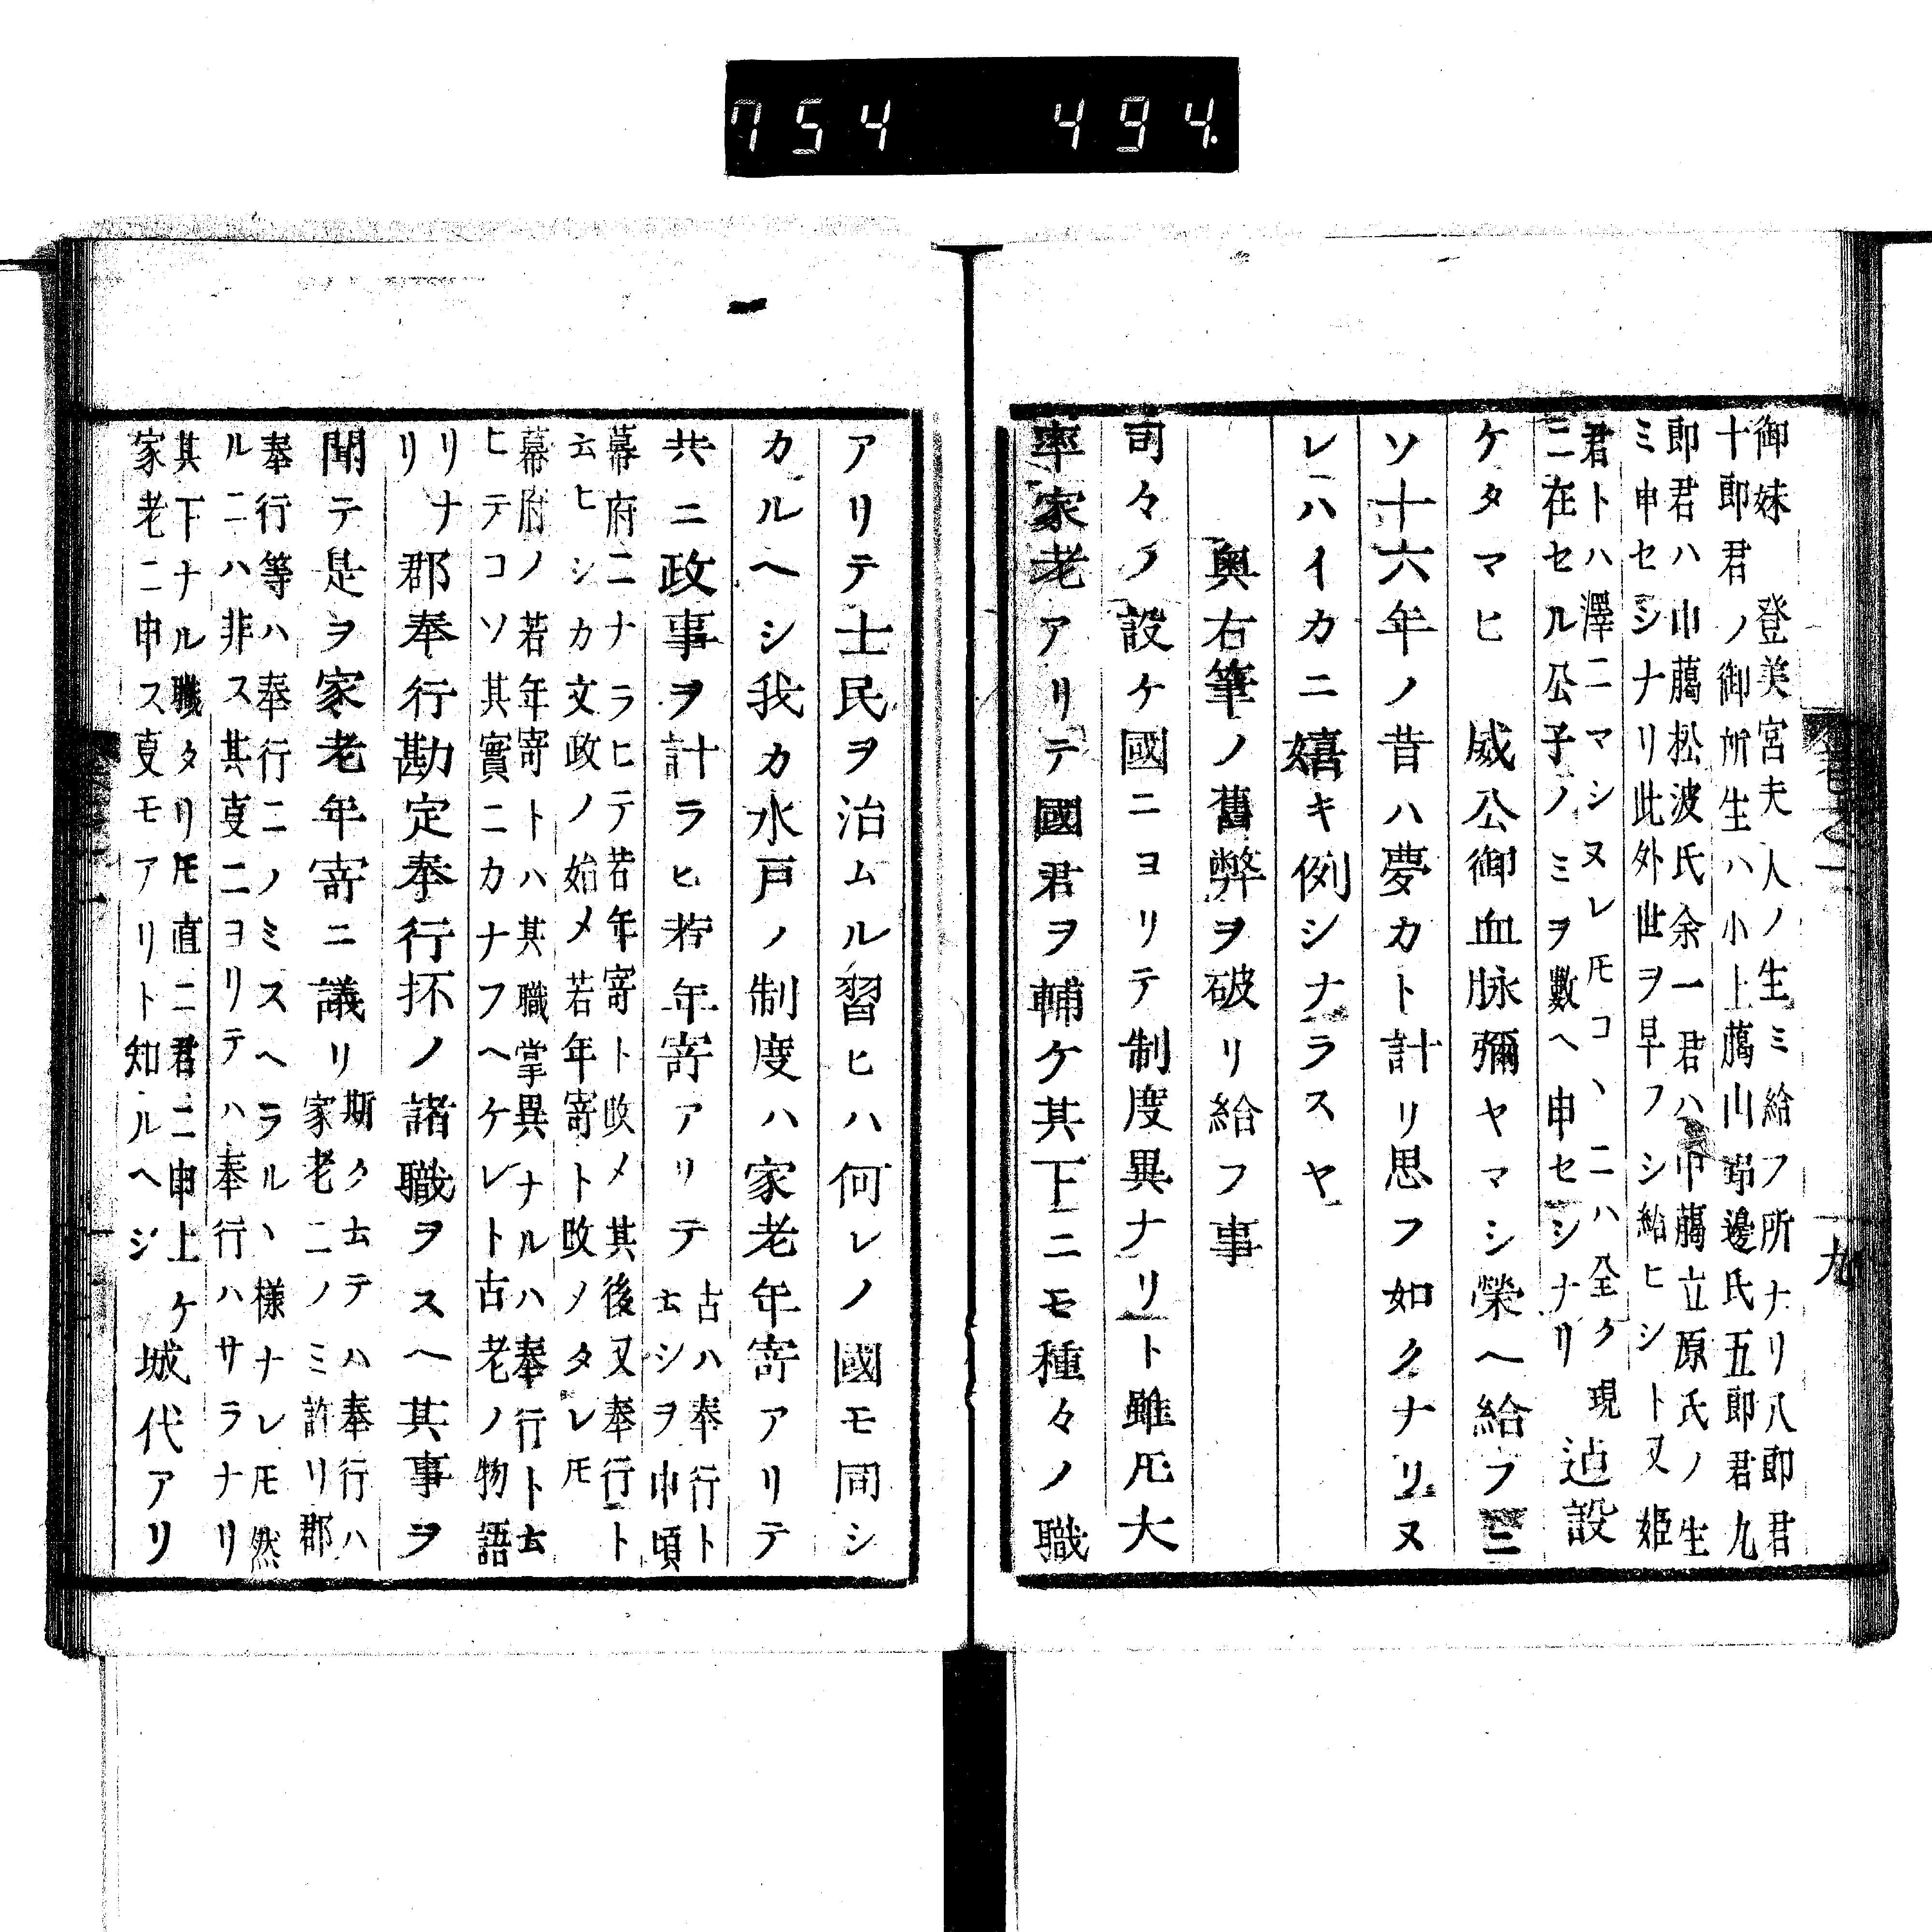 754 494.
御妹 登美宮夫人ノ生ミ給フ所ナリ八郎君
十郎君ノ御所生ハ小上﨟山野邊氏五郎君九
郎君ハ中﨟松波氏余一君ハ中﨟立原氏ノ生
ミ申セシナリ此外世ヲ早フシ給ヒシト又姫
君トハ澤ニマシヌレ𪜈コヽニハ全ク現
ニ在セル公子ノミヲ數ヘ申セシナリ 迠設
ケタマヒ 威公御血脉彌ヤマシ榮ヘ給フニ
ソ十六年ノ昔ハ夢カト計リ思フ如クナリヌ
レハイカニ嬉キ例シナラスヤ
奥右筆ノ舊弊ヲ破リ給フ事
司々ノ設ケ國ニヨリテ制度異ナリト雖𪜈大
率家老アリテ國君ヲ輔ケ其下ニモ種々ノ職
九
アリテ士民ヲ治ムル習ヒハ何レノ國モ同シ
カルヘシ我カ水戸ノ制度ハ家老年寄アリテ
共ニ政事ヲ計ラヒ若年寄アリテ
古ハ奉行ト
云シヲ中頃
幕府ニナラヒテ若年寄ト改メ其後又奉行ト
云ヒシカ文政ノ始メ若年寄ト改メタレ𪜈
幕府ノ若年寄トハ其職掌異ナルハ奉行ト云
ヒテコソ其實ニカナフヘケレト古老ノ物語
リナ
リ
郡奉行勘定奉行抔ノ諸職ヲスヘ其事ヲ
聞テ是ヲ家老年寄ニ議リ
斯ク云テハ奉行ハ
家老ニノミ許リ郡
奉行等ハ奉行ニノミスヘラルヽ様ナレ𪜈然
ルニハ非ス其叓ニヨリテハ奉行ハサラナリ
其下ナル職タリ𪜈直ニ君ニ申上ケ
家老ニ申ス叓モアリト知ルヘシ
城代アリ